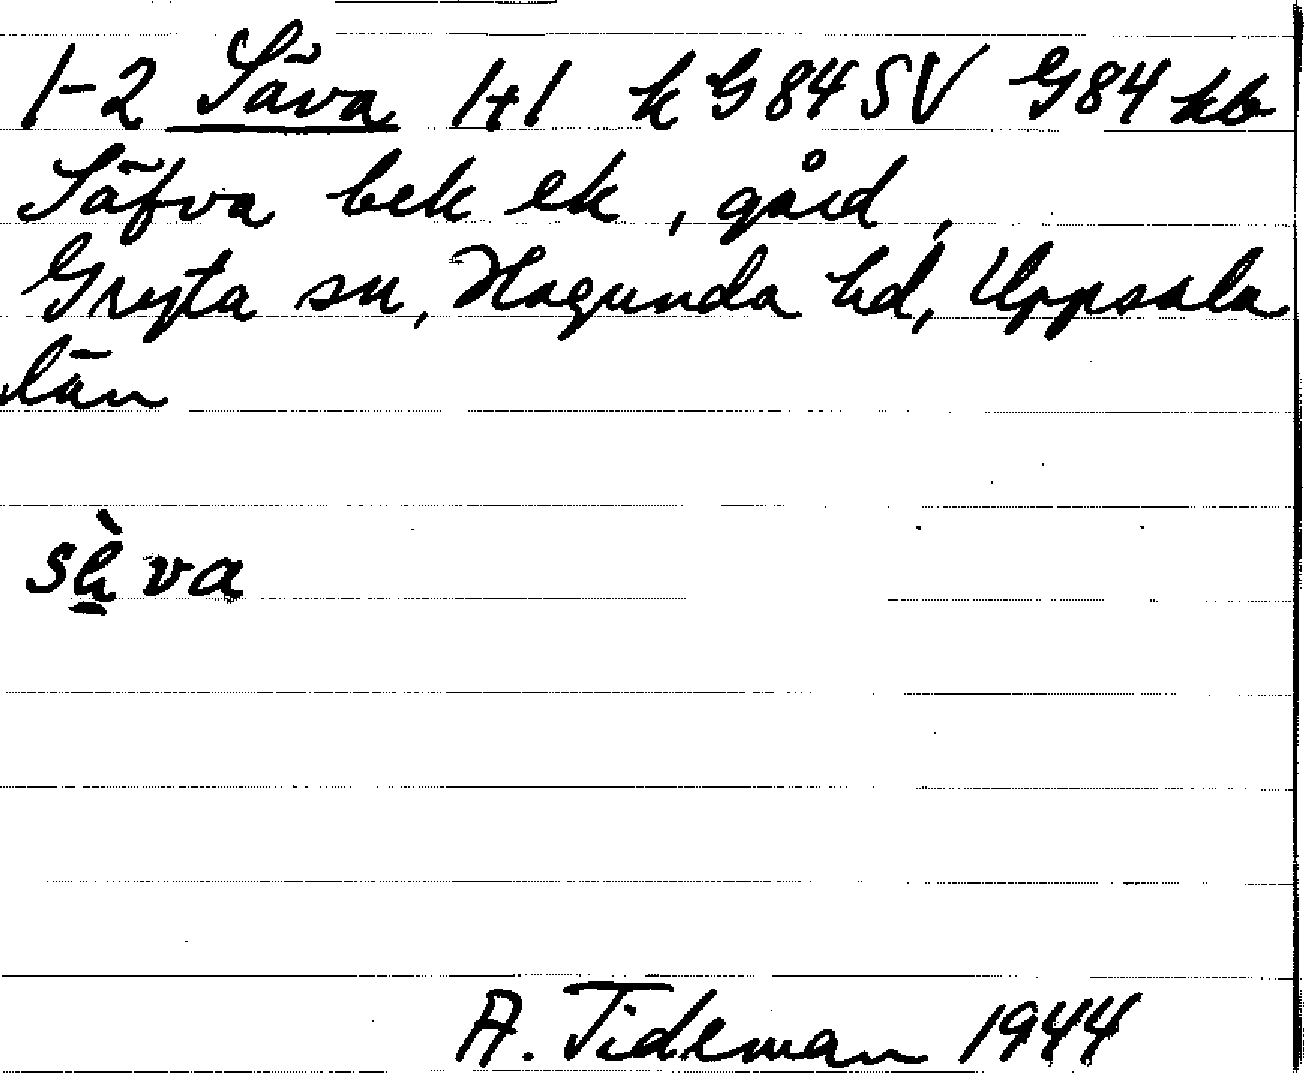 1-2 Säva 1+1 k G 84 SV G 84 kb
Säfva bek ek, gård,
Gryta sn, Hagunda hd, Uppsala
län
sä̀va
A. Tideman 1944